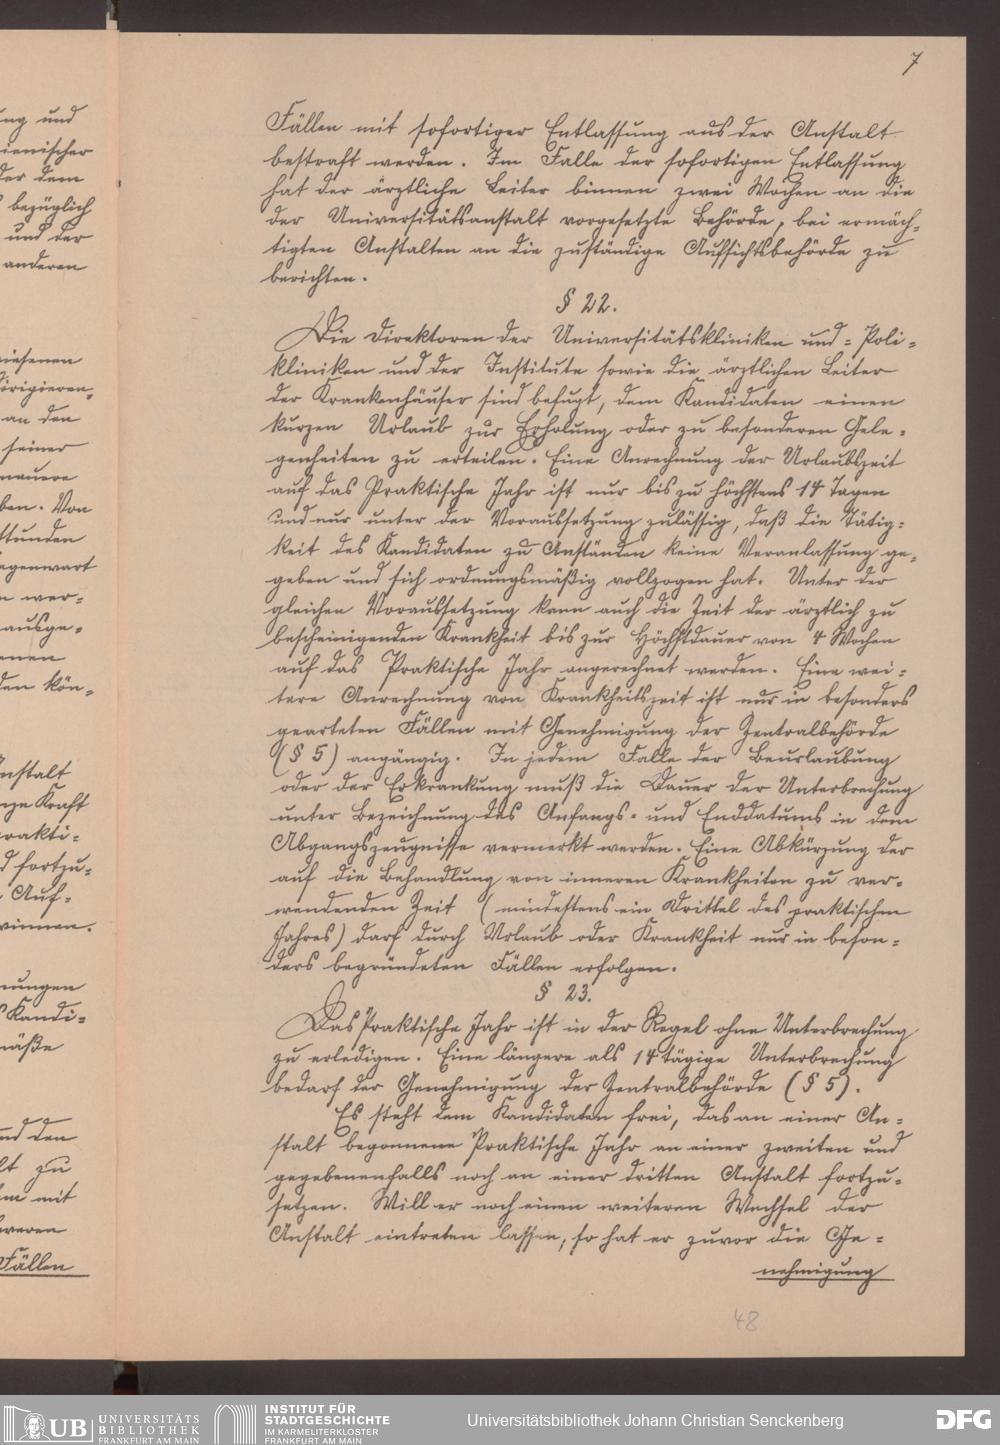 7
ng und
ienischer
der dem
bezüglich
und der
anderen
iesenen
dirigieren-
an den
seiner
nauere
ben. Von
stunden
egenwart
n wer-
ausge-
enen
den kön-
nstalt
nze Kraft
prakti-
d fortzu-
Auf-
winnen.
nungen
Kandi-
mäße
nd den
lt zu
em mit
hweren
Fällen
Fällen mit sofortiger Entlassung aus der Anstalt
bestraft werden. Im Falle der sofortigen Entlassung
hat der ärztliche Leiter binnen zwei Wochen an die
der Universitätsanstalt vorgesetzte Behörde, bei ermäch-
tigten Anstalten an die zuständige Aufsichtsbehörde zu
berichten.
§ 22.
Die Direktoren der Universitätskliniken und - Poli-
kliniken und der Institute sowie die ärztlichen Leiter
der Krankenhäuser sind befugt, dem Kandidaten einen
kurzen Urlaub zur Erholung oder zu besonderen Gele-
genheiten zu erteilen. Eine Anrechnung der Urlaubszeit
auf das Praktische Jahr ist nur bis zu höchstens 14 Tagen
und nur unter der Voraussetzung zulässig, daß die Tätig-
keit des Kandidaten zu Anständen keine Veranlassung ge-
geben und sich ordnungsmäßig vollzogen hat. Unter der
gleichen Voraussetzung kann auch die Zeit der ärztlich zu
bescheinigenden Krankheit bis zur Höchstdauer von 4 Wochen
auf das Praktische Jahr angerechnet werden. Eine wei-
tere Anrechnung von Krankheitszeit ist nur in besonders
gearteten Fällen mit Genehmigung der Zentralbehörde
(§ 5) angängig. In jedem Falle der Beurlaubung
oder der Erkrankung muß die Dauer der Unterbrechung
unter Bezeichnung des Anfangs- und Enddatums in dem
Abgangszeugnisse vermerkt werden. Eine Abkürzung der
auf die Behandlung von inneren Krankheiten zu ver-
wendenden Zeit (mindestens ein Drittel des praktischen
Jahres) darf durch Urlaub oder Krankheit nur in beson-
ders begründeten Fällen erfolgen.
§ 23.
Das Praktische Jahr ist in der Regel ohne Unterbrechung
zu erledigen. Eine längere als 14 tägige Unterbrechung
bedarf der Genehmigung der Zentralbehörde (§ 5).
Es steht dem Kandidaten frei, das an einer An-
stalt begonnene Praktische Jahr an einer zweiten und
gegebenenfalls noch an einer dritten Anstalt fortzu-
setzen. Will er noch einen weiteren Wechsel der
Anstalt eintreten lassen, so hat er zuvor die Ge-
nehmigung
48
UB UNIVERSITÄTS
BIBLIOTHEK
FRANKFURT AM MAIN
INSTITUT FÜR
STADTGESCHICHTE
IM KARMELITERKLOSTER
FRANKFURT AM MAIN
Universitätsbibliothek Johann Christian Senckenberg
DFG